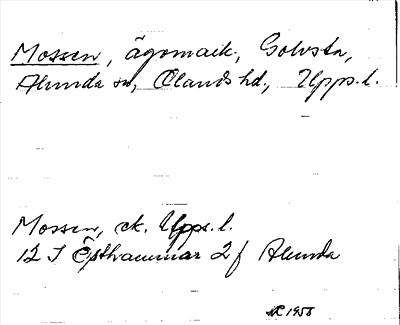 Mossen, ägomark, Golvsta,
Alunda sn, Olands hd., Upps.l.
Mossen, ek. Upps.l.
12 I Östhammar 2f Alunda
1958